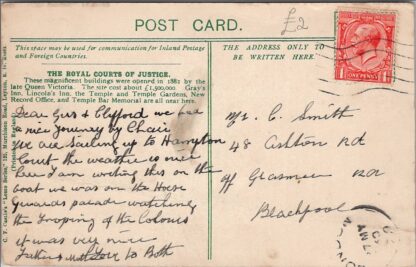 POST CARD.
£2
This space may be used for communication for Inland Postage
and Foreign Countries.
THE ADDRESS ONLY TO
BE WRITTEN HERE.
THE ROYAL COURTS OF JUSTICE.
These magnificent buildings were opened in 1882 by the
late Queen Victoria. The site cost about £1,500,000. Gray's
Inn, Lincoln's Inn, the Temple and Temple Gardens, New
Record Office, and Temple Bar Memorial are all near here.
Dear Gus & Clifford we had
a nice Journey by Chair
we are sailing up to Hampton
Court the weather is nice
I am writing this on the
boat we was on the Horse
Guards parade watching
the Trooping of the Colours
it was very nice
Fathers love to Both
Mr. C. Smith
48 Ashton Rd
off Grasmere Rd
Blackpool
1 ONE PENNY 1